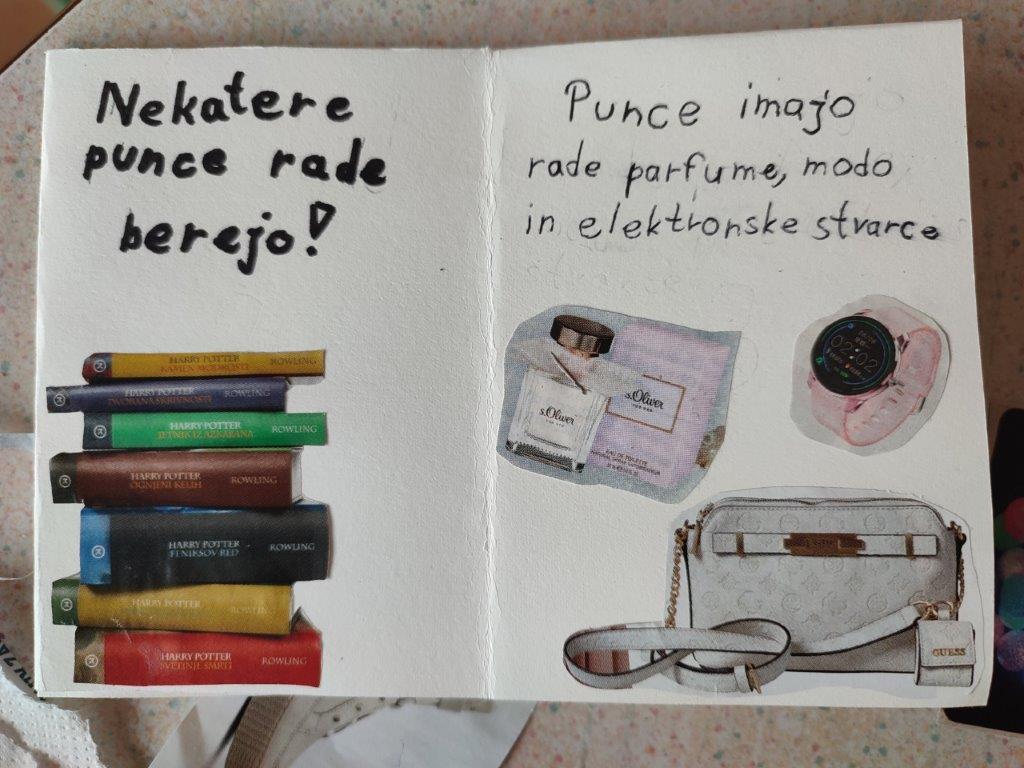 Nekatere
punce rade
berejo!
Punce imajo
rade parfume, modo
in elektronske stvarce
HARRY POTTER ROWLING
KAMEN MODROSTI
HARRY POTTER ROWLING
DVORANA SKRIVNOSTI
HARRY POTTER ROWLING
JETNIK IZ AZKABANA
HARRY POTTER ROWLING
OGNJENI KELIH
HARRY POTTER ROWLING
FENIKSOV RED
HARRY POTTER ROWLING
HARRY POTTER ROWLING
SVETINJE SMRTI
s.Oliver
FOR HER
s.Oliver
FOR HER
EAU DE TOILETTE
02:02
GUESS